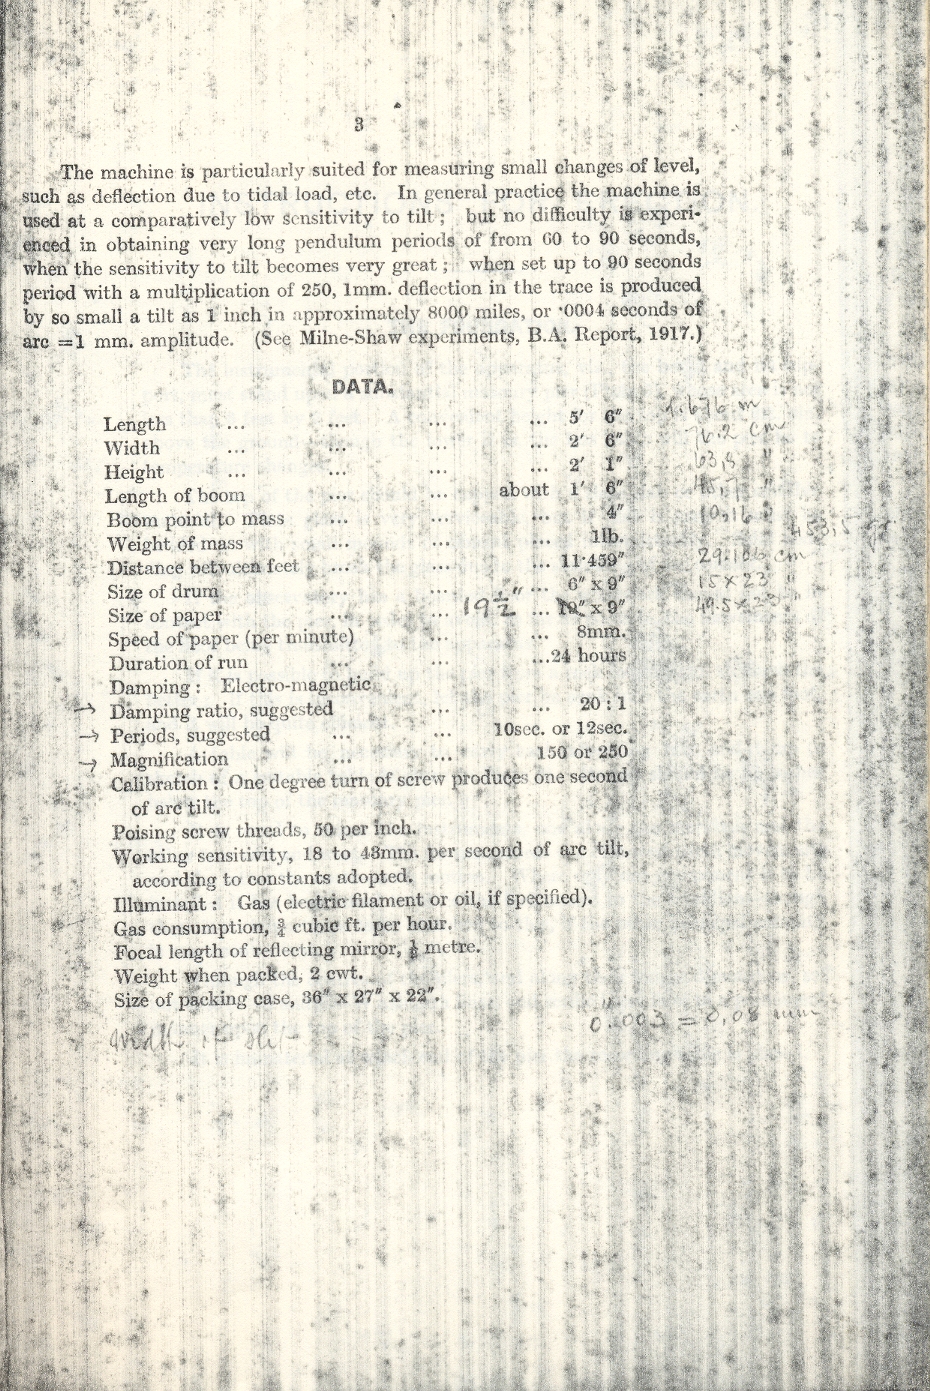 3
The machine is particularly suited for measuring small changes of level,
such as deflection due to tidal load, etc. In general practice the machine is
used at a comparatively low sensitivity to tilt ; but no difficulty is experi-
enced in obtaining very long pendulum periods of from 60 to 90 seconds,
when the sensitivity to tilt becomes very great ; when set up to 90 seconds
period with a multiplication of 250, 1mm. deflection in the trace is produced
by so small a tilt as 1 inch in approximately 8000 miles, or ·0004 seconds of
arc =1 mm. amplitude. (See Milne-Shaw experiments, B.A. Report, 1917.)
DATA.
Length ... ... ... ... 5′ 6″ 1.676 m
Width ... ... ... ... 2′ 6″ 76.2 cm
Height ... ... ... ... 2′ 1″ 63,5 "
Length of boom ... ... about 1′ 6″ 45,7 "
Boom point to mass ... ... ... 4″ 10,16 "
Weight of mass ... ... ... 1lb. 453,5 gr.
Distance between feet ... ... ... 11·459″ 29.106 cm
Size of drum ... ... ... 6″ x 9″ 15 x 23 "
Size of paper ... ... 19½" ... 19″ x 9″ 49.5 x 23 "
Speed of paper (per minute) ... ... 8mm.
Duration of run ... ... ...24 hours
Damping : Electro-magnetic
→ Damping ratio, suggested ... ... 20 : 1
→ Periods, suggested ... ... 10sec. or 12sec.
→ Magnification ... ... 150 or 250
Calibration : One degree turn of screw produces one second
of arc tilt.
Poising screw threads, 50 per inch.
Working sensitivity, 18 to 43mm. per second of arc tilt,
according to constants adopted.
Illuminant : Gas (electric filament or oil, if specified).
Gas consumption, ¾ cubic ft. per hour.
Focal length of reflecting mirror, ½ metre.
Weight when packed, 2 cwt.
Size of packing case, 36″ x 27″ x 22″.
Width of slit 0".003 = 0,08 mm